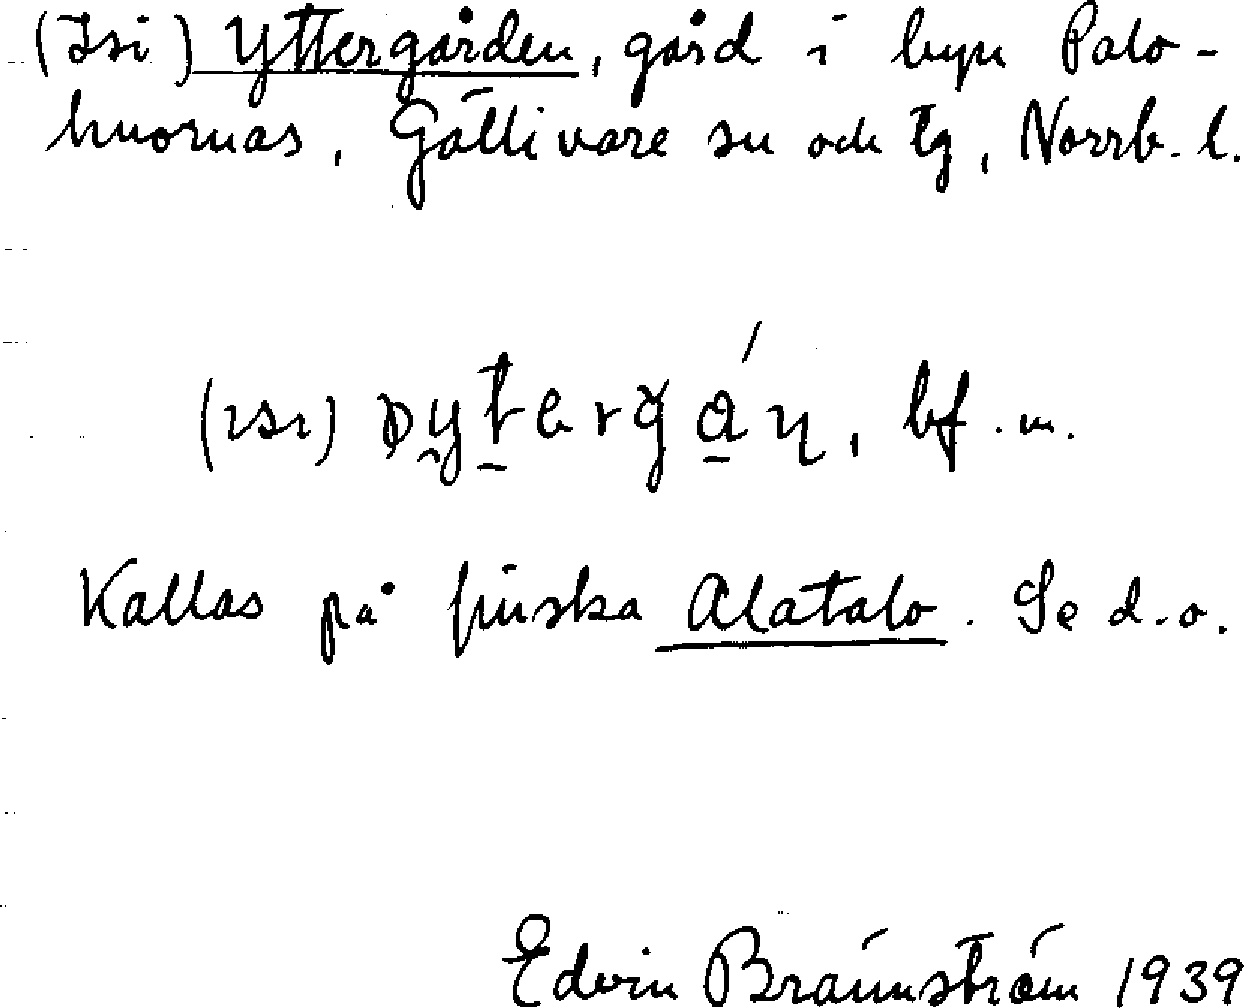 (Isi) Yttergården, gård i byn Palo-
huornas, Gällivare sn och tg, Norrb. l.
(ɪsɪ) bf. m.
Kallas på finska Alatalo. Se d. o.
Edvin Brännström 1939